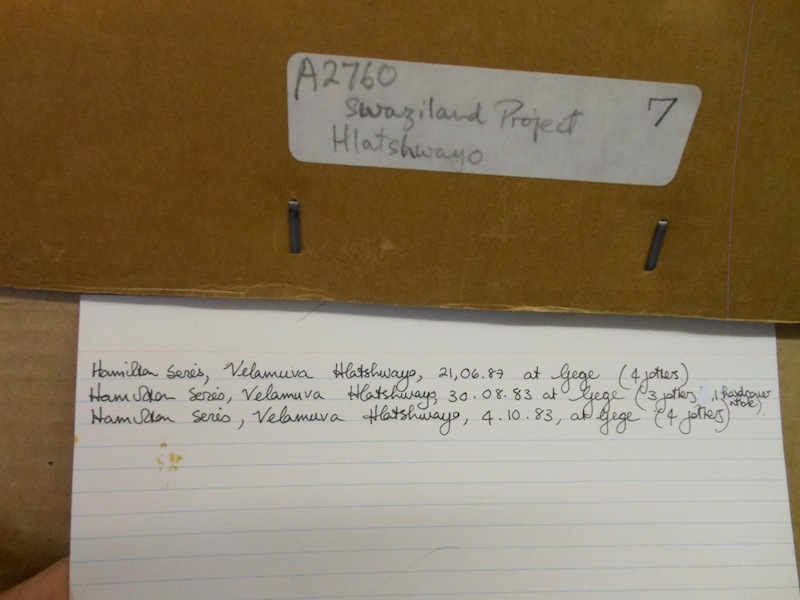 A2760
Swaziland Project 7
Hlatshwayo
Hamilton series, Velamuva Hlatshwayo, 21.06.87 at Gege (4 jotters)
Hamilton series, Velamuva Hlatshwayo, 30.08.83 at Gege (3 jotters, 1 hardcover
Hamilton series, Velamuva Hlatshwayo, 4.10.83, at Gege (4 jotters)